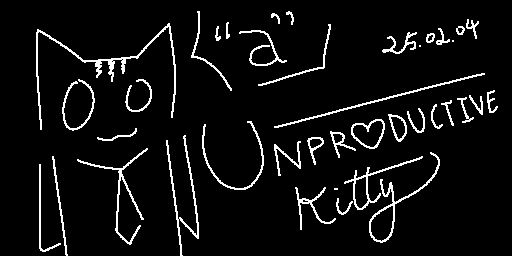 "a"
25.02.04
UNPR♡DUCTIVE
Kitty